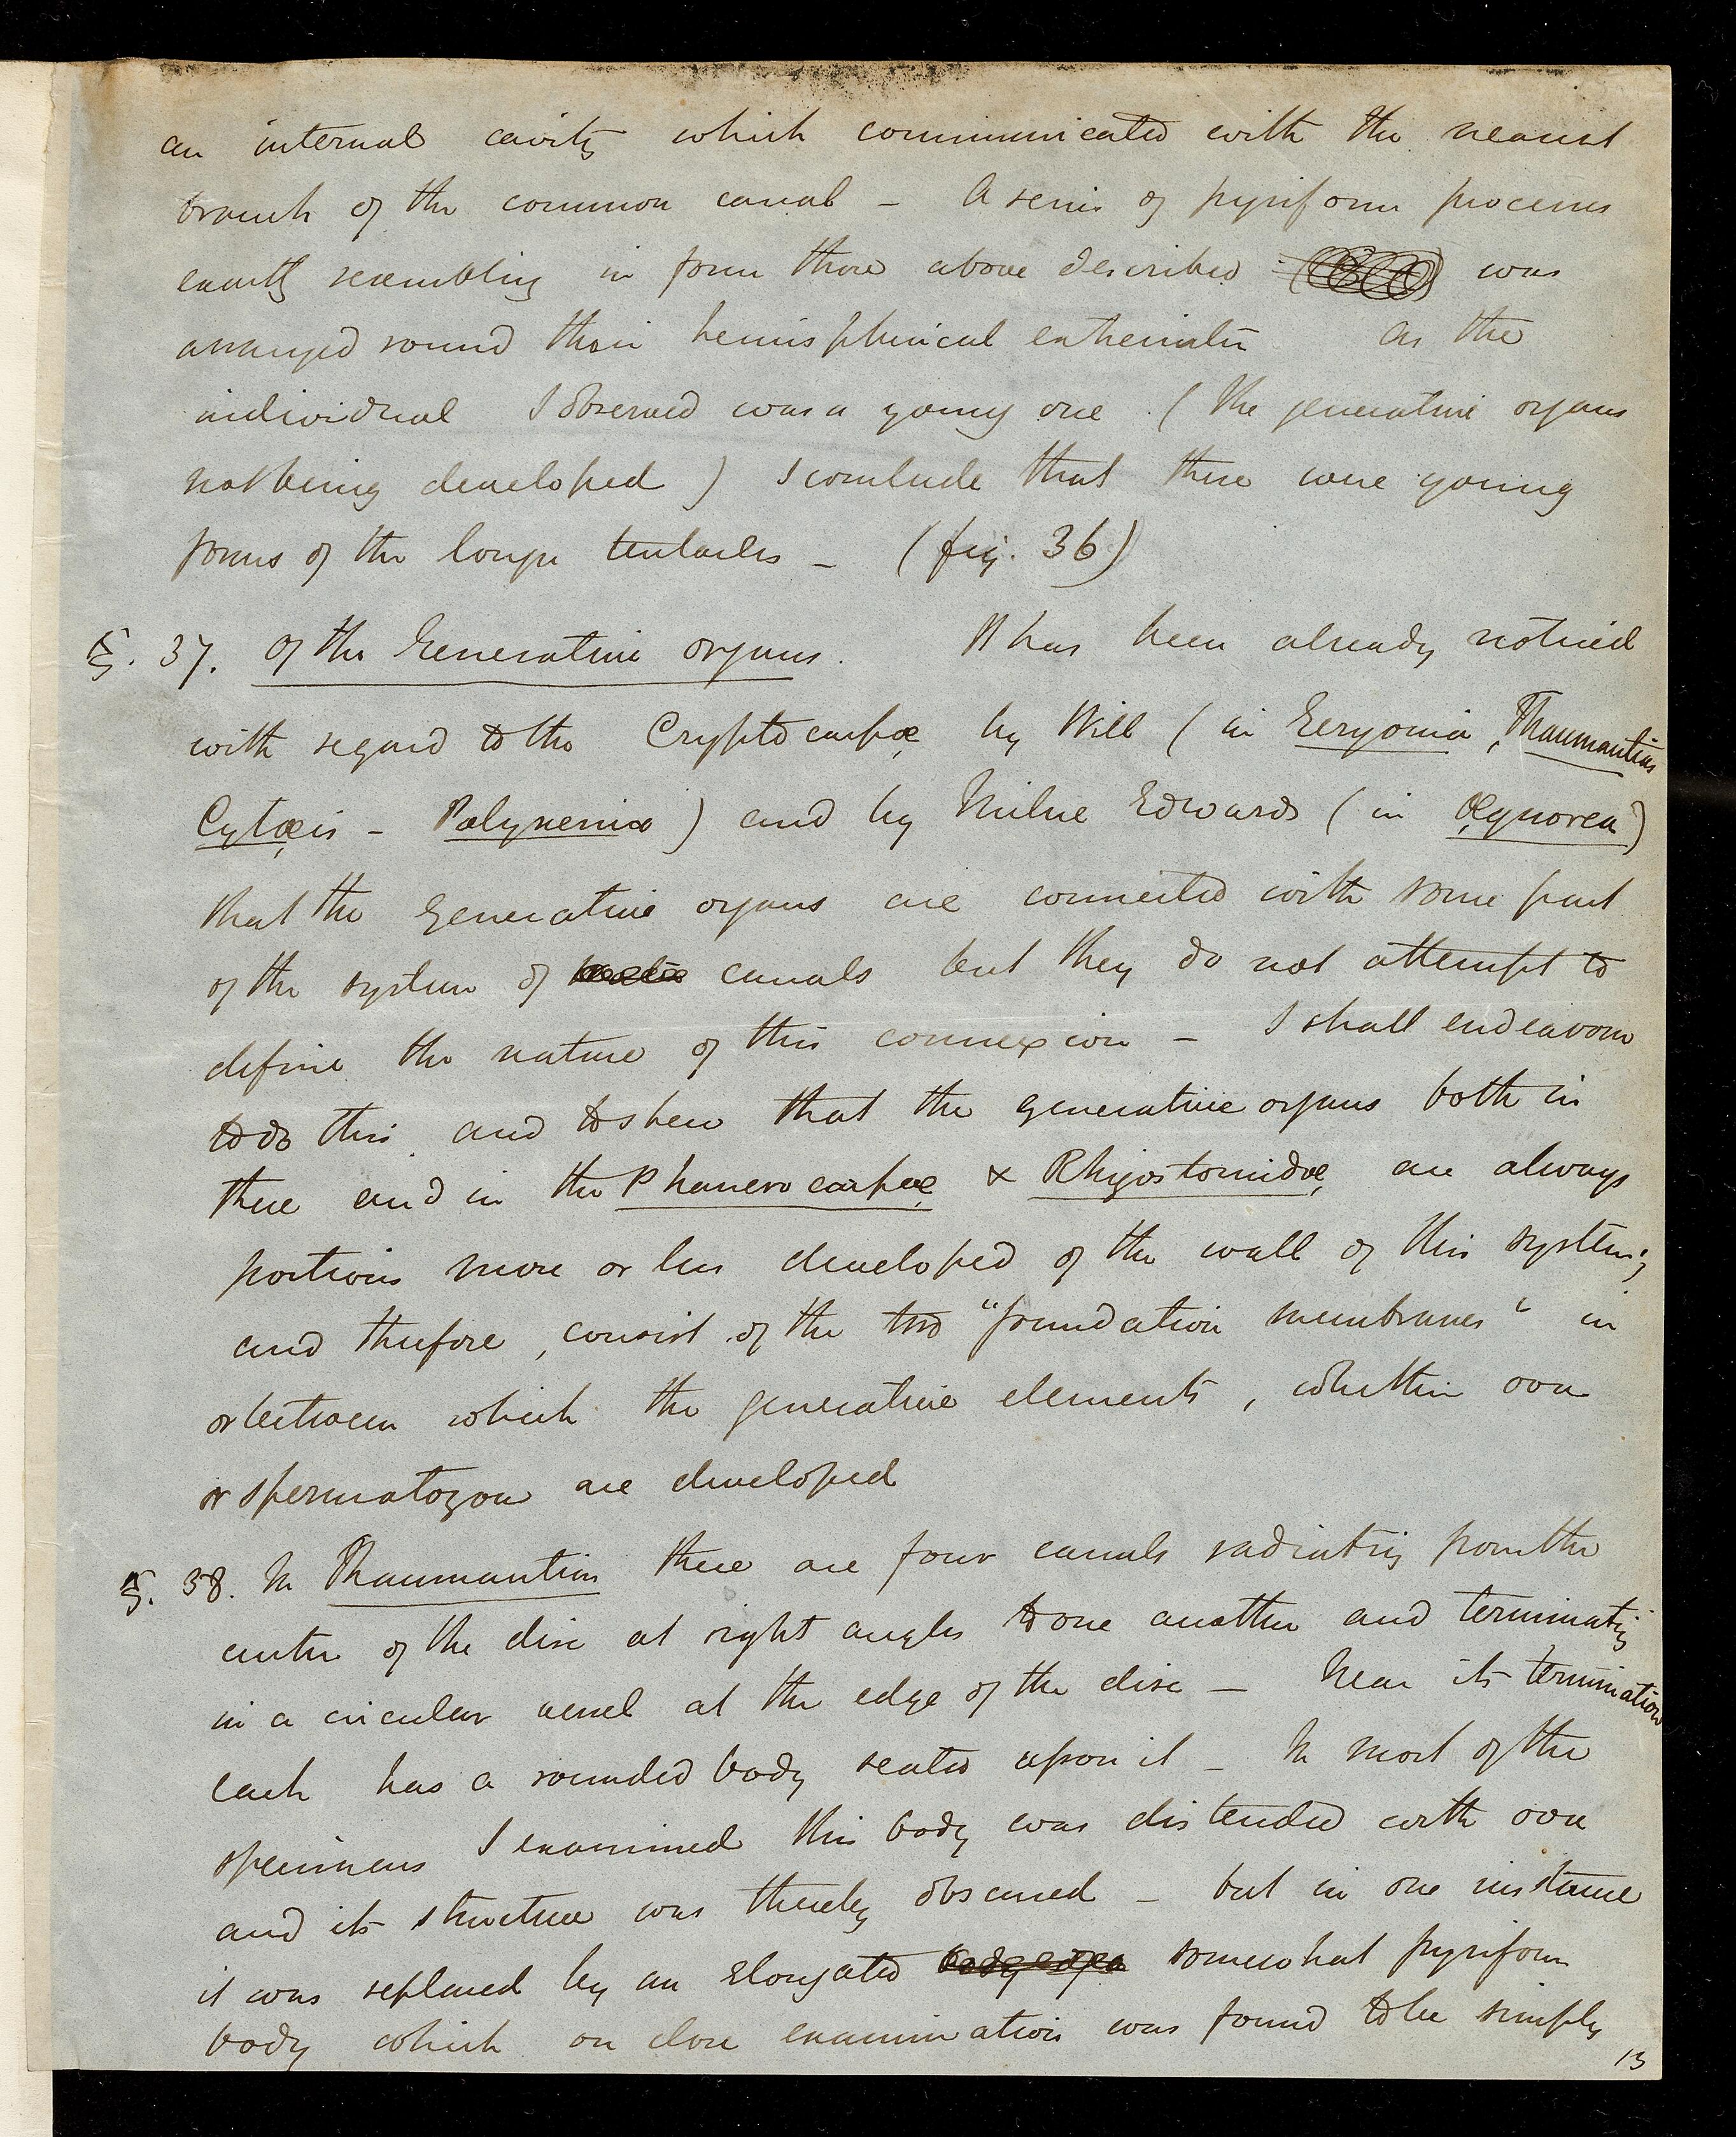 an internal cavity which communicated with the nearest
branch of the common canal – A series of pyriform processes
exactly resembling in form those above described was
arranged round their hemispherical extremities As the
individual I observed was a young one. (the generative organs
not being developed) I conclude that these were young
forms of the longer tentacles – (fig. 36)
§. 37. Of the Generative organs. It has been already noticed
with regard to the Cryptocarpæ by Will (in Geryonia, Thaumantias
Cytæis – Polyxenia) and by Milne Edwards (in Æquorea)
that the generative organs are connected with some part
of the system of canals but they do not attempt to
define the nature of this connexion – I shall endeavour
to do this and to shew that the generative organs both in
these and in the Phanerocarpæ & Rhizostomidæ, are always
portions more or less developed of the wall of this system;
and therefore, consist of the two "foundation membranes" in
or between which the generative elements, whether ova
or spermatozoa are developed
§. 38. In Thaumantias there are four canals radiating from the
center of the disc at right angles to one another and terminating
in a circular vessel at the edge of the disc – Near its termination
each has a rounded body seated upon it – In most of the
specimens I examined this body was distended with ova
and its structure was thereby obscured – but in one instance
it was replaced by an elongated somewhat pyriform
body which on close examination was found to be simply
13